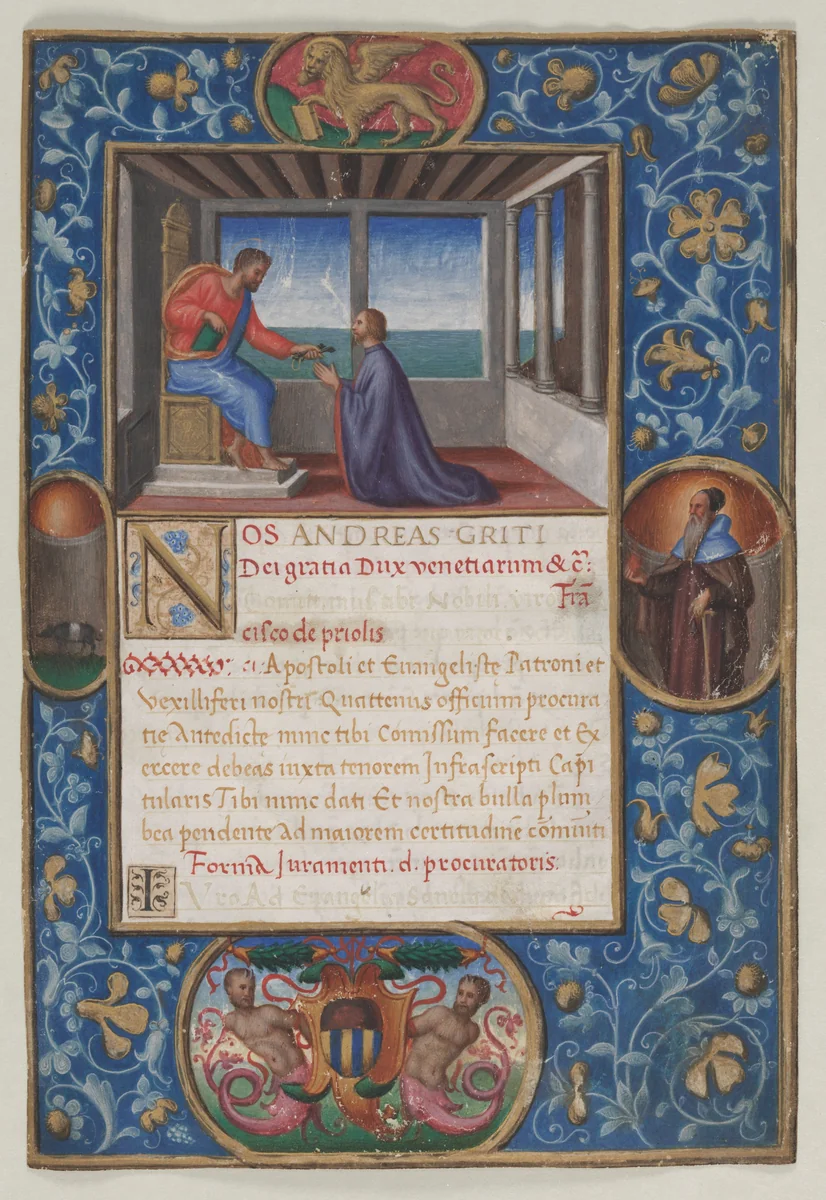 NOS ANDREAS GRITI
Dei gratia Dux venetiarum & c̃:
Frã
cisco de priolis
Apostoli et Euangelistę Patroni et
vexilliferi nostri Quattenus officium procura
tię Antedictę nunc tibi Comissum facere et Ex
ercere debeas iuxta tenorem Infrascripti Capi
tularis Tibi nunc dati Et nostra bulla plum
bea pendente Ad maiorem certitudinẽ
Forma Iuramenti. d. procuratoris.
IVro Ad Euangelia